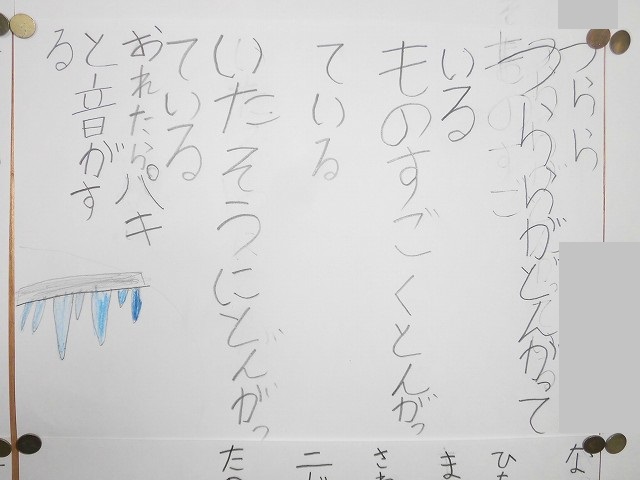 つらら
つららがとんがって
いる
ものすごくとんがっ
ている
いたそうにとんがっ
ている
おれたらパキ
と音がす
る